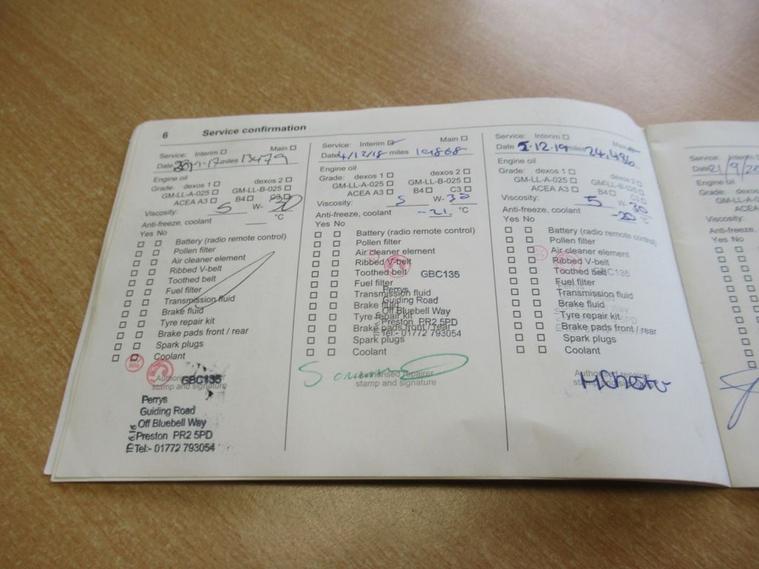 6 Service confirmation
Service: Interim Main
Date miles 13479
Engine oil
Grade: dexos 1 dexos 2
GM-LL-A-025 GM-LL-B-025
ACEA A3 B4 C3
Viscosity: 5 W- 30
Anti-freeze, coolant °C
Yes No
Battery (radio remote control)
Pollen filter
Air cleaner element
Ribbed V-belt
Toothed belt
Fuel filter
Transmission fluid
Brake fluid
Tyre repair kit
Brake pads front / rear
Spark plugs
Coolant
GBC135
stamp and signature
Perrys
Guiding Road
Off Bluebell Way
Preston PR2 5PD
Tel:- 01772 793054
Service: Interim Main
Date 4/12/18 miles 19868
Engine oil
Grade: dexos 1 dexos 2
GM-LL-A-025 GM-LL-B-025
ACEA A3 B4 C3
Viscosity: 5 W- 30
Anti-freeze, coolant -21 °C
Yes No
Battery (radio remote control)
Pollen filter
Air cleaner element
Ribbed V-belt
Toothed belt GBC135
Fuel filter
Perrys
Transmission fluid
Guiding Road
Brake fluid
Off Bluebell Way
Tyre repair kit
Preston PR2 5PD
Brake pads front / rear
Tel:- 01772 793054
Spark plugs
Coolant
Authorised repairer
stamp and signature
Service: Interim Main
Date 2.12.19 miles 24,486
Engine oil
Grade: dexos 1 dexos 2
GM-LL-A-025 GM-LL-B-025
ACEA A3 B4 C3
Viscosity: 5 W- 30
Anti-freeze, coolant °C
Yes No
Battery (radio remote control)
Pollen filter
Air cleaner element
Ribbed V-belt
Toothed belt GBC135
Fuel filter
Transmission fluid
Brake fluid
Tyre repair kit
Brake pads front / rear
Spark plugs
Coolant
Authorised repairer
stamp and signature
Service: Interim
Date 21/9/20
Engine oil
Grade: dexos
GM-LL-A
ACEA
Viscosity:
Anti-freeze,
Yes No